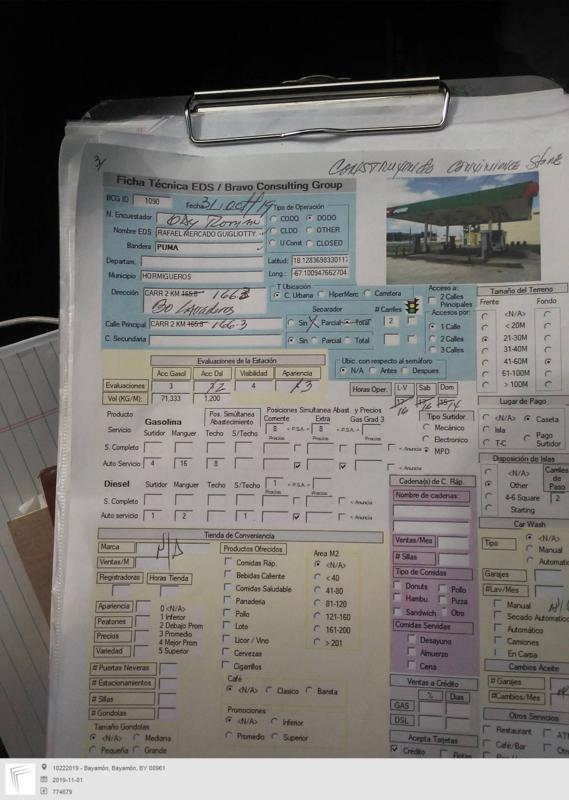 3/
CONSTRUYENDO CONVINIENCE Store
Ficha Técnica EDS / Bravo Consulting Group
BCG ID 1090 Fecha 31/oct/19
Tipo de Operación
N. Encuestador
CODO DODO
Nombre EDS. RAFAEL MERCADO GUIGLIOTTY
CLDO OTHER
Bandera PUMA
U Const CLOSED
Departam.
Latitud: 18.1283698330117
Municipio HORMIGUEROS
Long.: -67.100947662704
Dirección CARR 2 KM 165.8 166.3
T Ubicación
C. Urbana HiperMerc Carretera
Separador # Carriles
Calle Principal CARR 2 KM 165.8 166.3
Sin Parcial Total 2
C. Secundaria
Sin Parcial Total
Acceso a:
2 Calles Principales
Accesos por:
1 Calle
2 Calles
3 Calles
Tamaño del Terreno
Frente Fondo
<N/A>
< 20M
21-30M
31-40M
41-60M
61-100M
> 100M
Evaluaciones de la Estación
Acc Gasol Acc Dsl Visibilidad Apariencia
Evaluaciones 3 4
Vol (KG/M): 71,333 1,200
Ubic. con respecto al semáforo
N/A Antes Despues
Horas Oper. L-V Sab Dom
Lugar de Pago
<N/A> Caseta
Isla Pago Surtidor
T-C
Producto
Gasolina
Pos. Simultanea Abastecimiento
Posiciones Simultanea Abast. y Precios
Corriente Extra Gas Grad 3
8 < P.S.A. > 8 < P.S.A. >
Servicio Surtidor Manguer Techo S/Techo Precios Precios Precios
S. Completo < Anuncia
Auto Servicio 4 16 8 < Anuncia
Tipo Surtidor
Mecánico
Electronico
MPD
Disposición de Islas
<N/A> Carriles de Paso
Other
4-6 Square 2
Starting
Diesel Surtidor Manguer Techo S/Techo 1 < P.S.A. >
Precios Precios
S. Completo < Anuncia
Auto servicio 1 2 1 < Anuncia
Cadena(s) de C. Ráp.
Nombre de cadenas:
Ventas/Mes
# Sillas
Tipo de Comidas
Donuts Pollo
Hambu. Pizza
Sandwich Otro
Comidas Servidas
Desayuno
Almuerzo
Cena
Ventas a Crédito
% Dias
GAS
DSL
Acepta Tarjetas
Crédito
Car Wash
Tipo <N/A>
Manual
Automatic
Garajes
#Lav/Mes
Manual
Secado Automatico
Automático
Camiones
En Carpa
Cambios Aceite
# Garajes
#Cambios/Mes
Otros Servicios
Restaurant
Café/Bar
Tienda de Conveniencia
Marca N/A
Ventas/M
Registradoras Horas Tienda
Apariencia 0 <N/A>
1 Inferior
Peatones 2 Debajo Prom
Precios 3 Promedio
4 Mejor Prom
Variedad 5 Superior
# Puertas Neveras
# Estacionamientos
# Sillas
# Gondolas
Tamaño Gondolas
<N/A> Mediana
Pequeña Grande
Productos Ofrecidos
Comidas Ráp.
Bebidas Caliente
Comidas Saludable
Panaderia
Pollo
Loto
Licor / Vino
Cervezas
Cigarrillos
Café
<N/A> Clasico Barista
Promociones
<N/A> Inferior
Promedio Superior
Area M2
<N/A>
< 40
41-80
81-120
121-160
161-200
> 201
10222019 - Bayamón, Bayamón, BY 00961
2019-11-01
774679